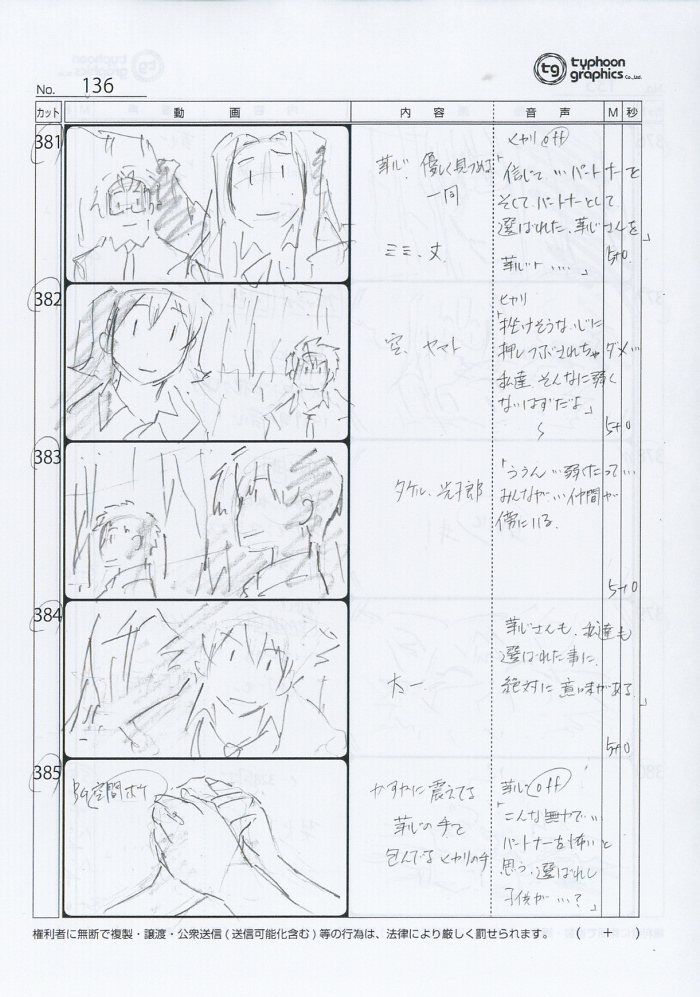 typhoon
graphics Co.,Ltd.
No. 136
カット 動 画 内 容 音 声 M 秒
381
優しく見つめる
一同
ミミ、丈
ヒカリ off
「信じて…パートナーを
そしてパートナーとして
選ばれた、芽心さんを」
芽心……」
5+0
382
空、ヤマト
ヒカリ
「挫けそうな心に
押しつぶされちゃダメ…
私達、そんなに弱く
ないはずだよ」
5+0
383
タケル、光子郎
「ううん…弱くたって…
みんなが…仲間が
傍にいる
5+0
384
太一
芽心さんも、私達も
選ばれた事に
絶対に意味がある」
5+0
385
BG空間ボケ
かすかに震えてる
芽心の手を
包んでいるヒカリの手
芽心 off
「こんな無力で…
パートナーを怖いと
思う、選ばれし
子供が…?」
権利者に無断で複製・譲渡・公衆送信(送信可能化含む)等の行為は、法律により厳しく罰せられます。 ( + )